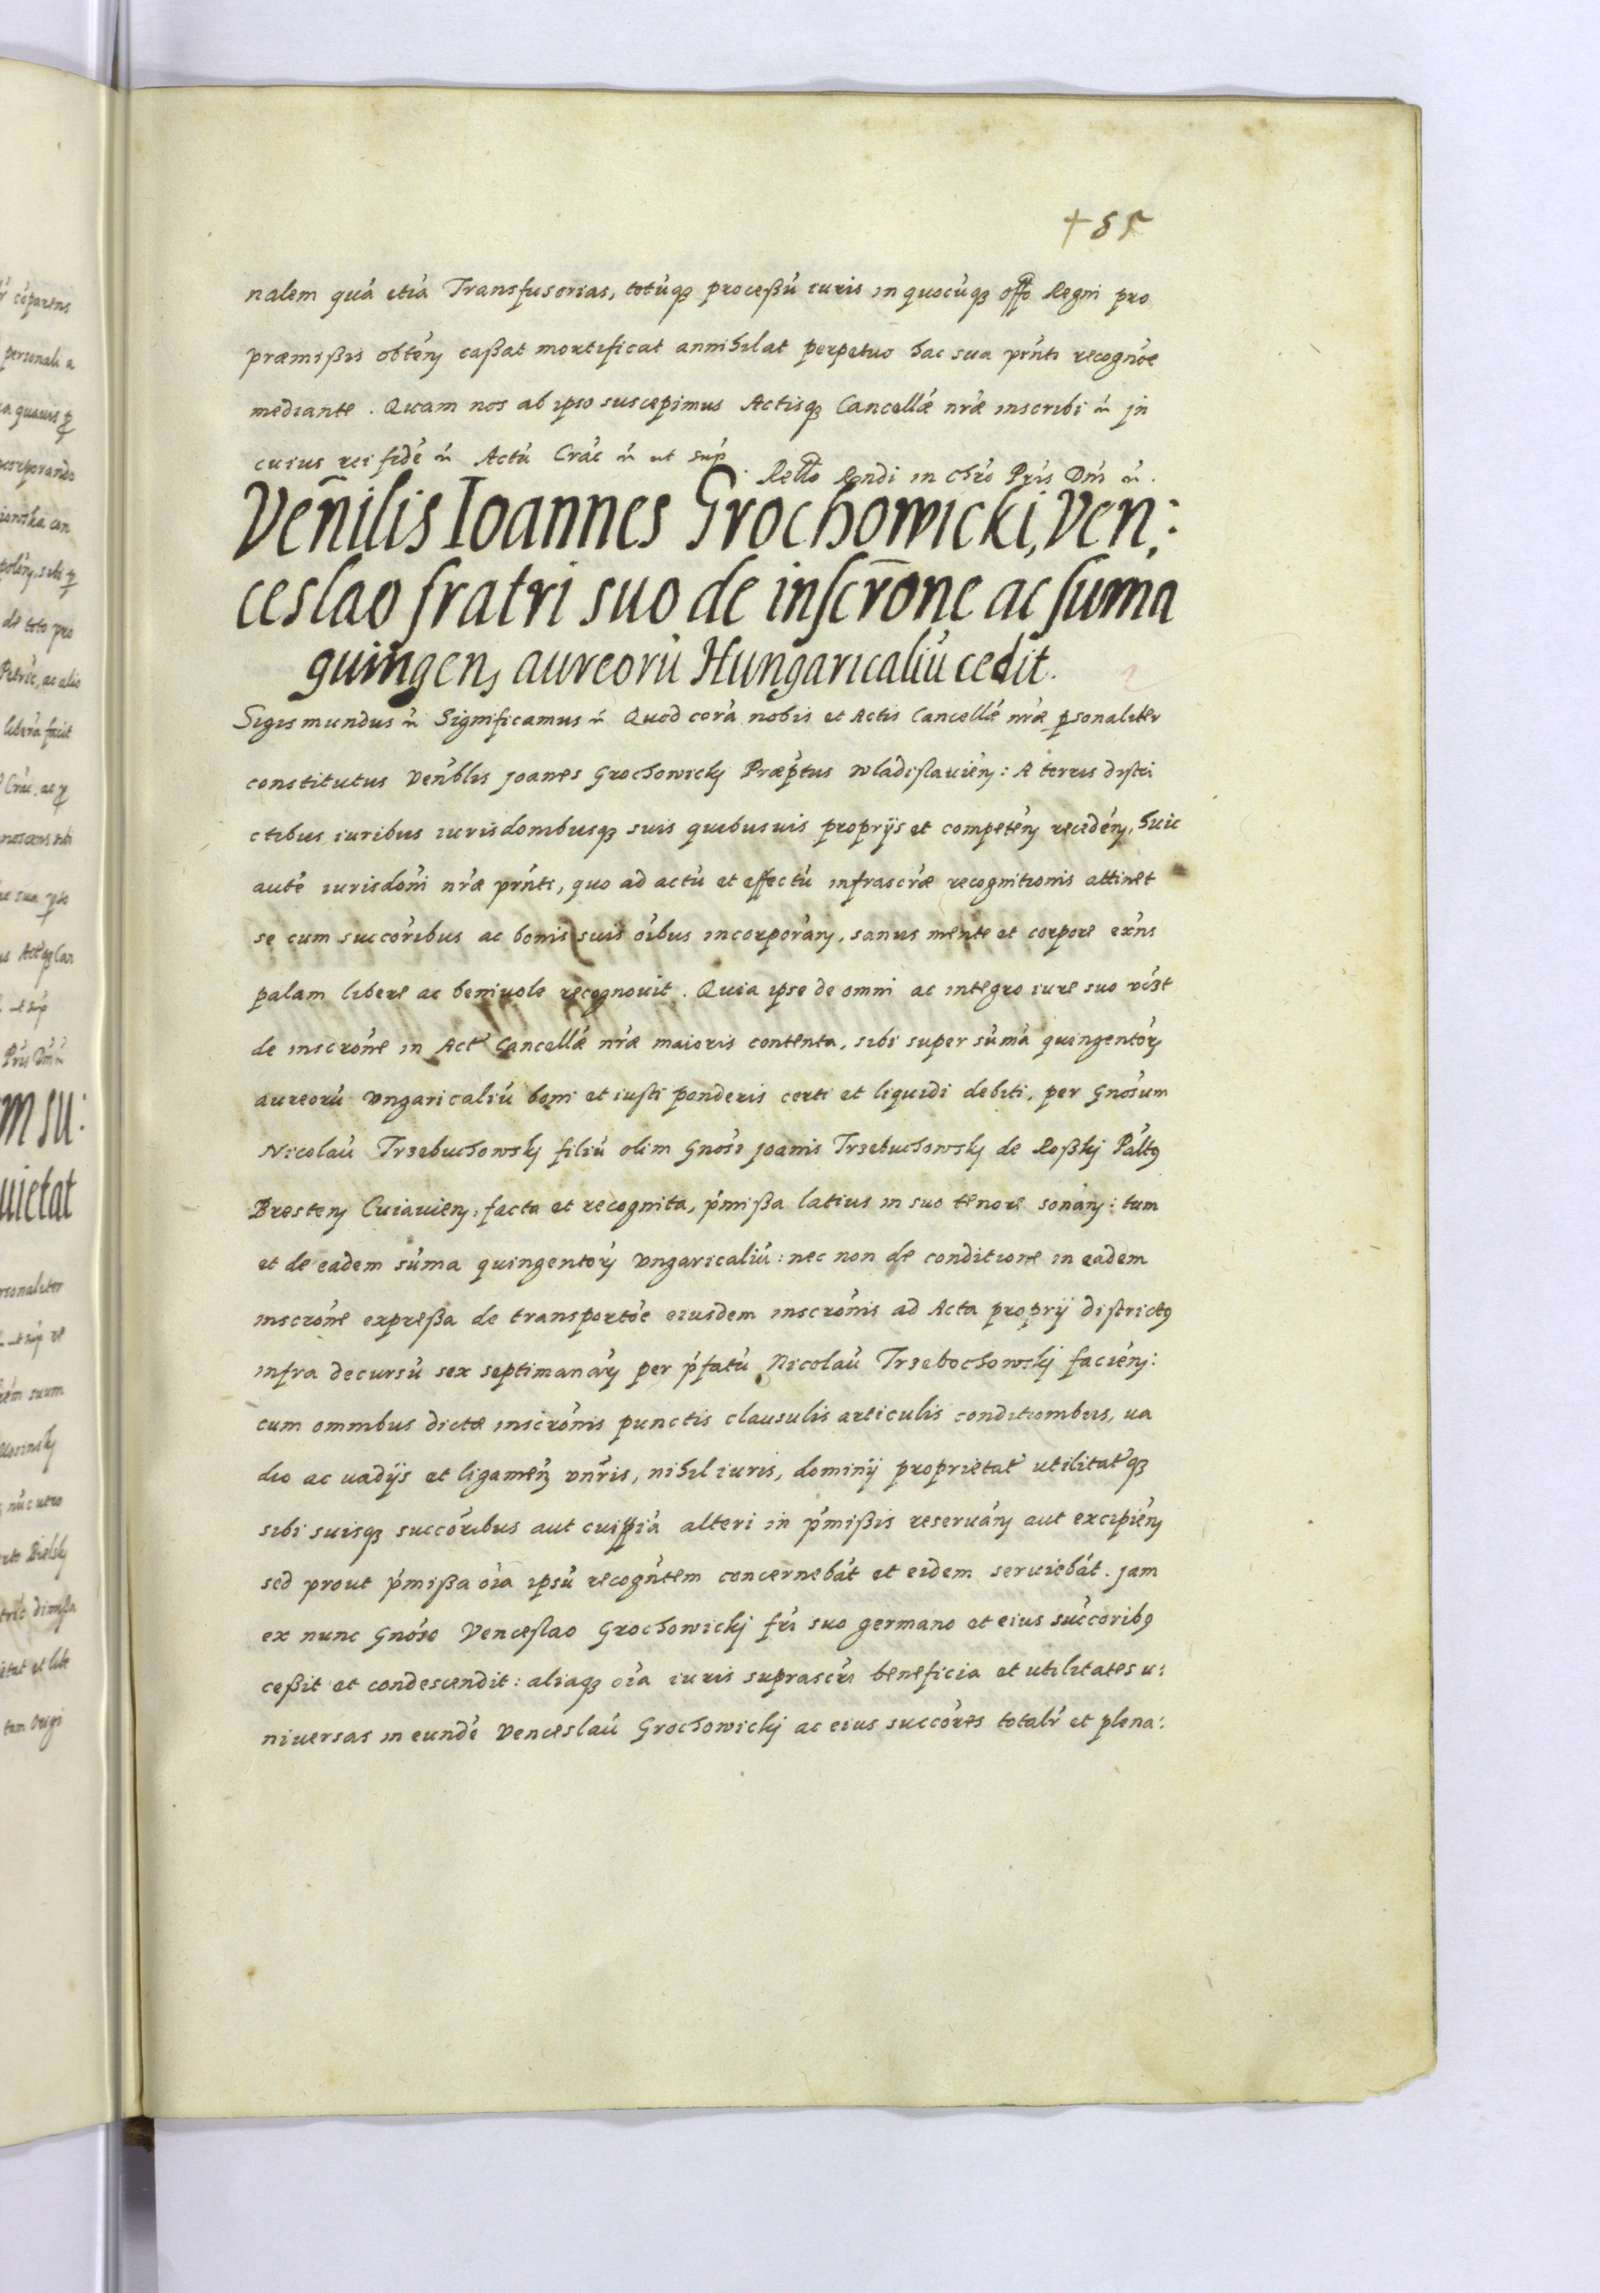 + 85
nalem quā etiā Transfusorias, totūq₃ processū iuris in quocūq₃ offo Regni pro
præmißis obteñ caßat mortificat annihilat perpetuo hac sua pñti recognõe
mediante. Quam nos ab ipso suscepimus Actisq₃ Cancellæ nrã inscribi ẽ Jn
cuius rei fidē ẽ Actū Crac̃ ẽ ut sup̃. Rello Rendi in Chrõ Pr̃is Dñi ẽ.
Veñilis Ioannes Grochowicki, Ven:
ceslao fratri suo de inscrōne ac suma
quingen, aureorū Hungaricaliū cedit.
Sigismundus ẽ Significamus ẽ Quod corā nobis et Actis Cancellæ nræ psonaliter
constitutus Venblis Joanes Grochowickj Præptus Wladislavień: A terris distri
ctibus iuribus iurisdombusq₃ suis quibusuis proprijs et competeń recedeń, huic
autē iurisdoñi nræ pñti, quo ad actū et effectū infrascræ recognitionis attinet
se cum succoribus ac bonis suis oībus incorporań, sanus mente et corpore exñs
palam libere ac beniuole recognouit. Quia ipse de omni ac integro iure suo
de inscrõne in Act' Cancellæ nræ maioris contenta, sibi super sūmā quingentoŕ
aureorū Vngaricaliū boni et iusti ponderis certi et liquidi debiti, per Gnosum
Nicolaū Trzebuchowskj filiū olim Gnosi Joanis Trzebuchowskj de Roßkj Palt9
Bresteń Cuiavień, facta et recognita, pmißa latius in suo tenore sonań: tum
et de eadem sūma quingentoŕ Vngaricaliū: nec non de conditione in eadem
inscrõne expreßa de transportõe eiusdem inscrõnis ad Acta proprij district9
infra decursū sex septimanaŕ per pfatū Nicolaū Trzebochowskj facień:
cum omnibus dictæ inscrõnis punctis clausulis articulis conditiombus, va
dio ac vadijs et ligamen vnr̃is, nihil iuris, dominij proprietat' utilitat'q₃
sibi suisq₃ succoribus aut cuippiā alteri in pmißis reservań aut excipień
sed prout pmißa oīa ipsū recogñtem concernebāt et eidem serviebāt. Jam
ex nunc Gnoso Venceslao Grochowickj fri suo germano et eius succorib9
ceßit et condescendit: aliaq₃ oīa iuris suprascri beneficia et utilitates u:
niversas in eundē Venceslaū Grochowickj ac eius succores totalr et plena: